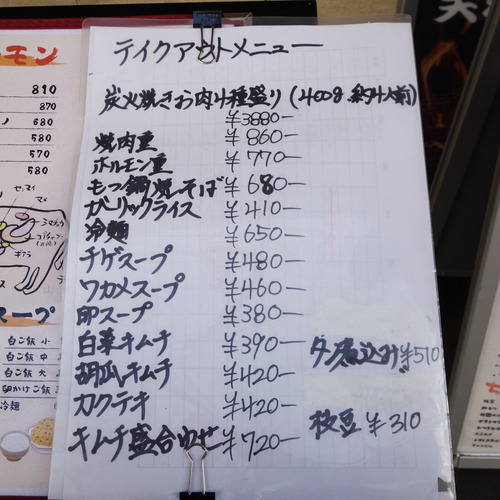 テイクアウトメニュー
炭火焼きお肉4種盛り(400g.約4人前)
¥3880-
焼肉重 ¥860-
ホルモン重 ¥770-
もつ鍋焼そば ¥680-
ガーリックライス ¥410-
冷麺 ¥650-
チゲスープ ¥480-
ワカメスープ ¥460-
卵スープ ¥380-
白菜キムチ ¥390-
胡瓜キムチ ¥420-
カクテキ ¥420-
キムチ盛合わせ ¥720-
煮込み ¥510
枝豆 ¥310
モン
810
870
680
580
570
580
センマイ
ミノ
ギアラ
スープ
白ご飯 小
白ご飯 中
白ご飯 大
卵かけご飯
冷麺